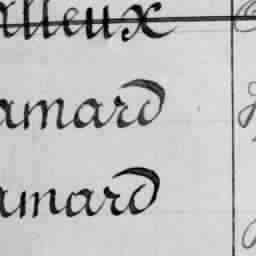 alleux
amard
amard